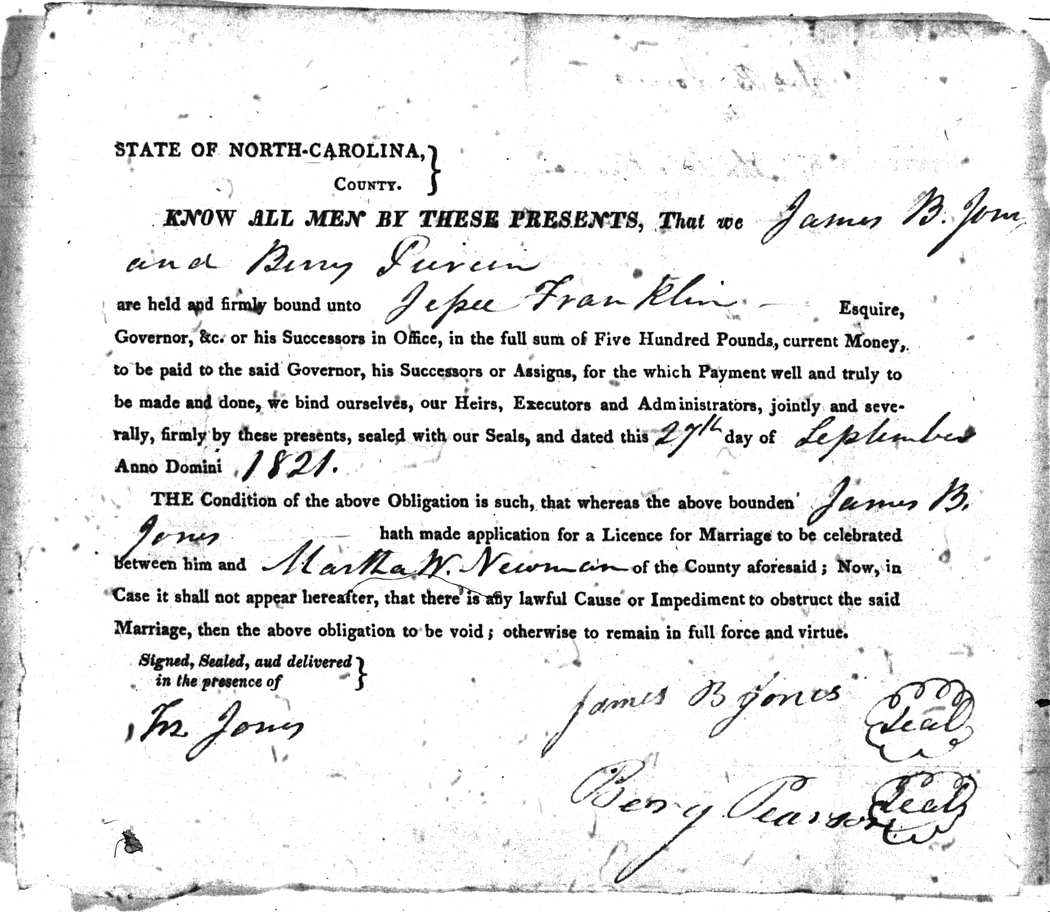 STATE OF NORTH-CAROLINA,
COUNTY.
KNOW ALL MEN BY THESE PRESENTS, That we James B. Jones
and Berry
are held and firmly bound unto Jessee Franklin Esquire,
Governor, &c. or his Successors in Office, in the full sum of Five Hundred Pounds, current Money,
to be paid to the said Governor, his Successors or Assigns, for the which Payment well and truly to
be made and done, we bind ourselves, our Heirs, Executors and Administrators, jointly and seve-
rally, firmly by these presents, sealed with our Seals, and dated this 27th day of September
Anno Domini 1821.
THE Condition of the above Obligation is such, that whereas the above bounden James B.
Jones hath made application for a Licence for Marriage to be celebrated
between him and Martha W. Newman of the County aforesaid; Now, in
Case it shall not appear hereafter, that there is any lawful Cause or Impediment to obstruct the said
Marriage, then the above obligation to be void; otherwise to remain in full force and virtue.
Signed, Sealed, aud delivered
in the presence of
James B Jones Seal
Jones
Berry Pearson Seal